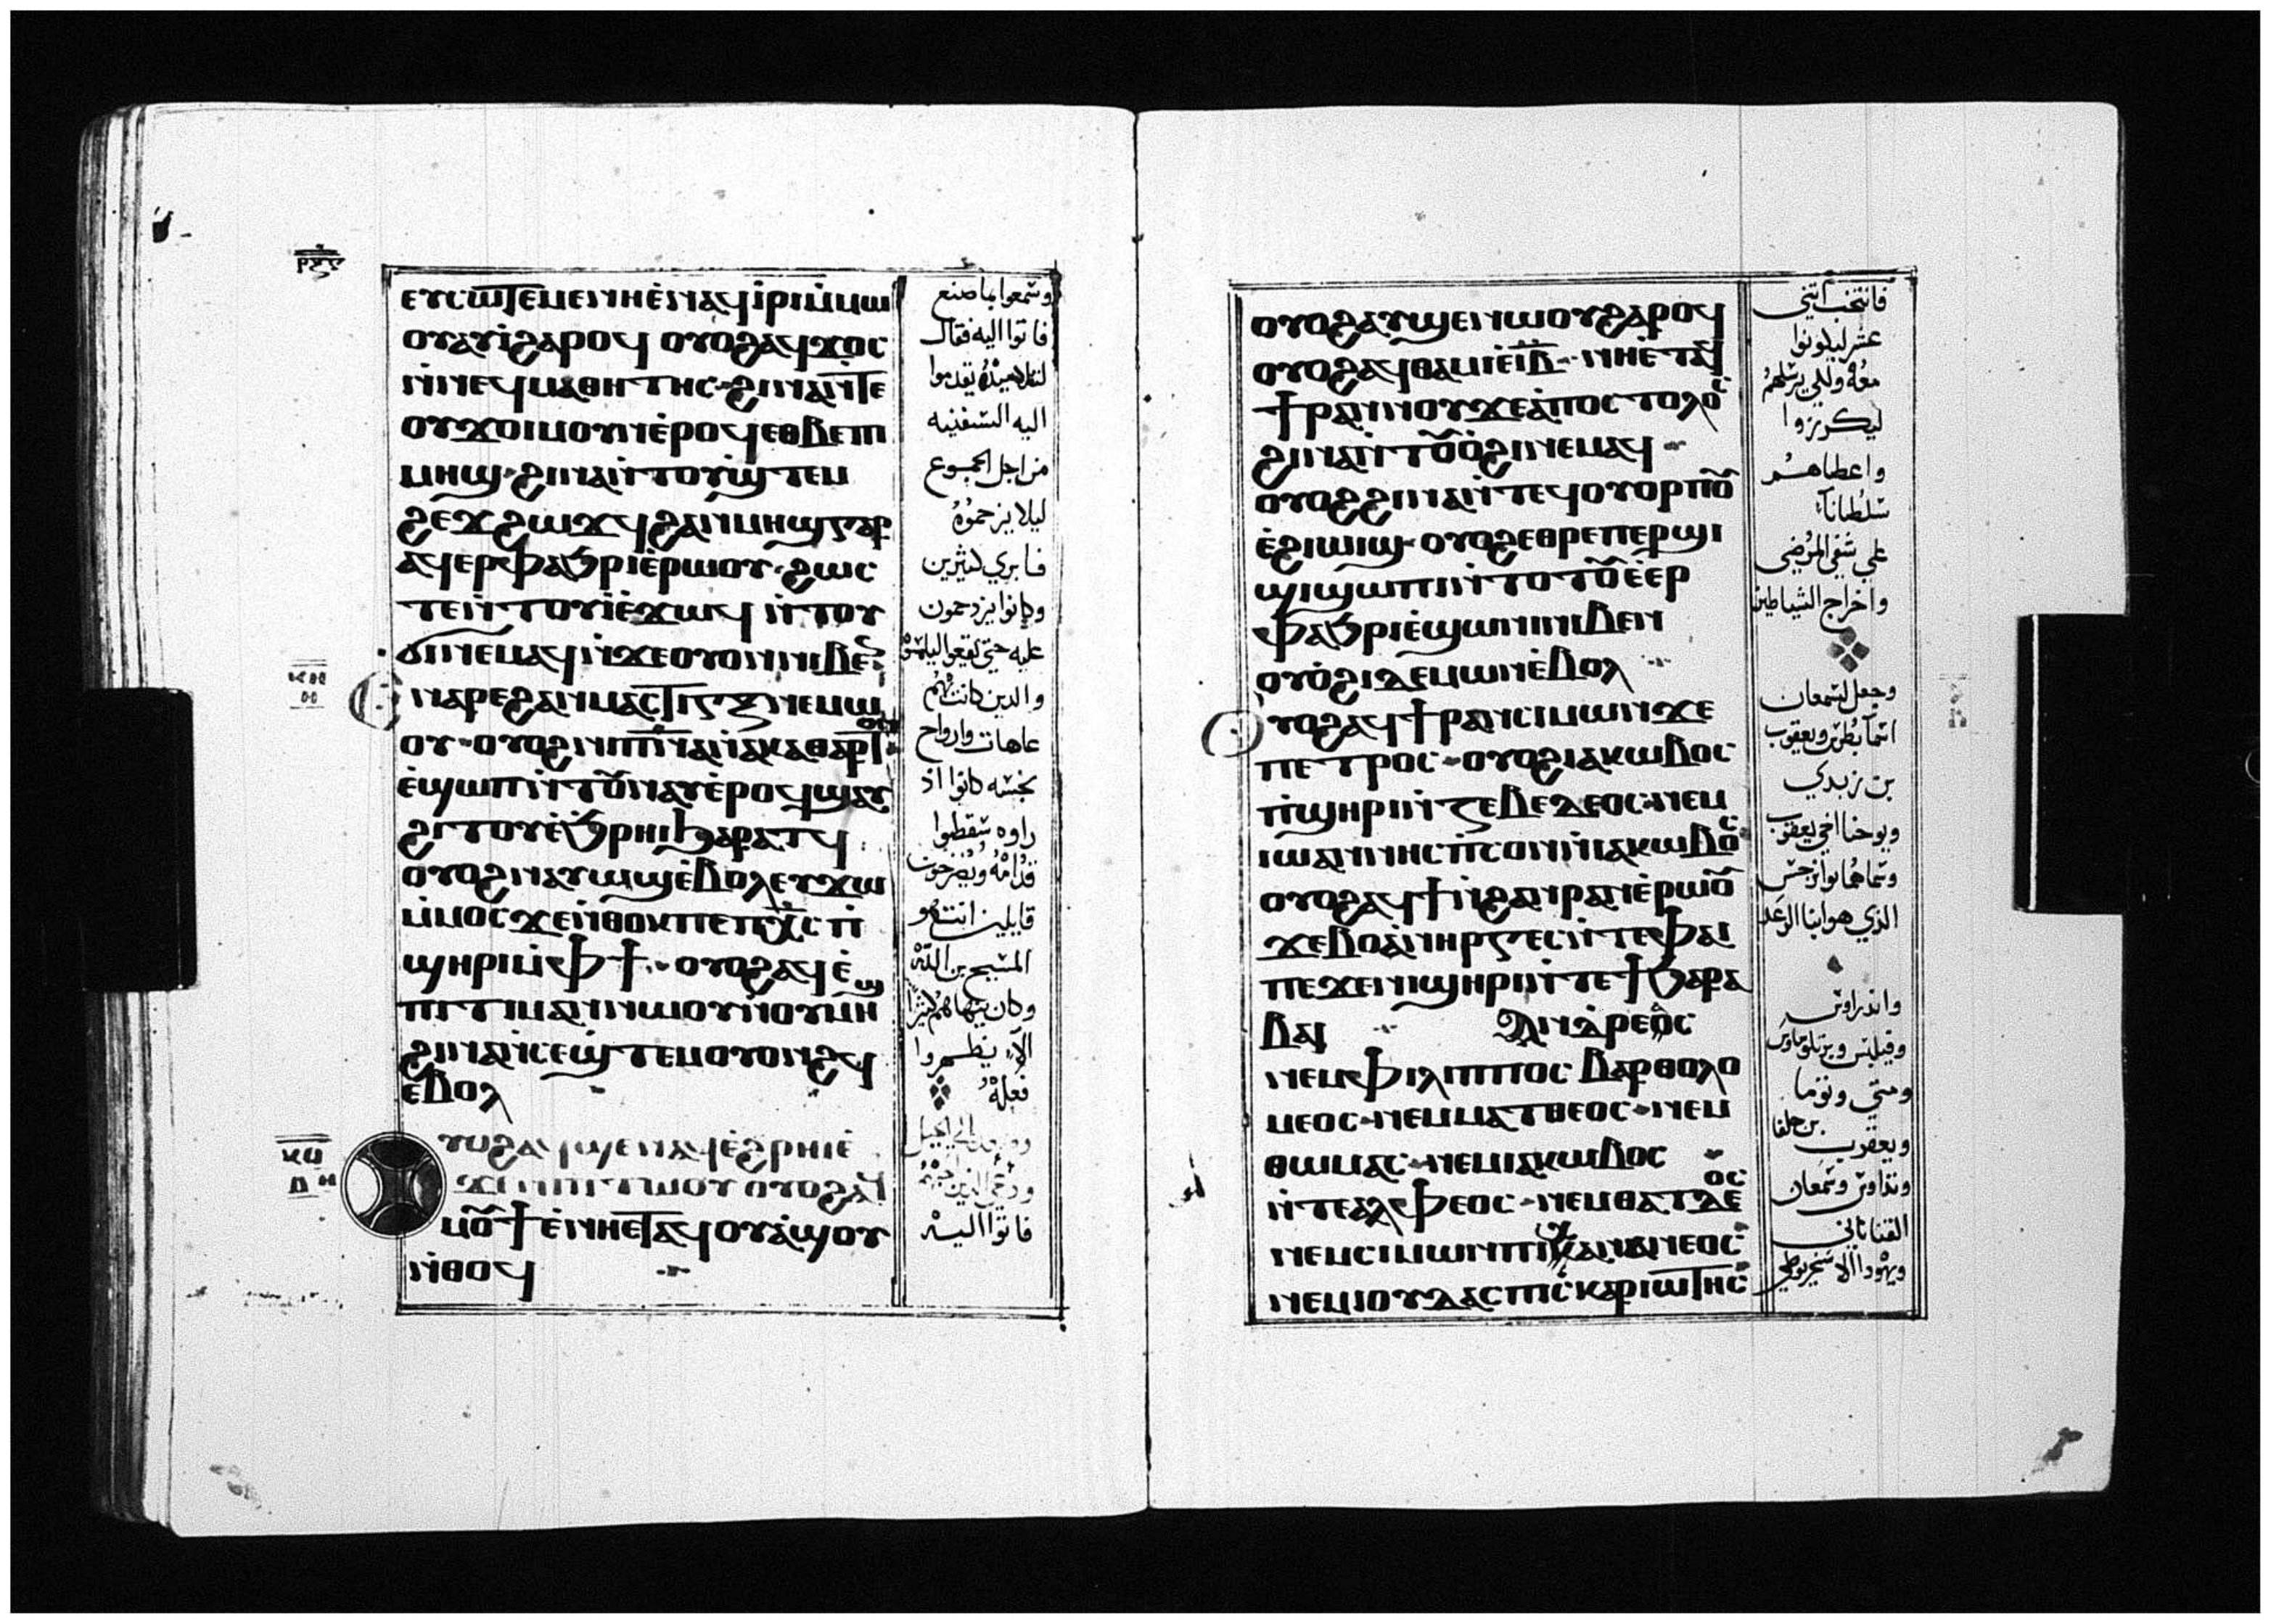 ⲉⲩⲥⲱⲧⲉⲙⲉⲛⲏⲉ̀ⲛⲁϥⲓ̀ⲣⲓⲙ̀ⲙⲱ
ⲟⲩⲁⲩⲓ̀ϩⲁⲣⲟϥ ⲟⲩⲟϩⲁϥϫⲟⲥ
ⲛ̀ⲛⲉϥⲙⲁⲑⲏⲧⲏⲥ ϩⲓⲛⲁⲛ̀ⲧⲉ
ⲟⲩϫⲟⲓⲙⲟⲩⲛⲉ̀ⲣⲟϥⲉⲑⲃⲉⲡⲓ
ⲙⲏϣ ϩⲓⲛⲁⲛ̀ⲧⲟⲩϣ̀ⲧⲉⲙ
ϩⲉϫϩⲱϫϥ ϩⲁⲛⲙⲏϣⲅⲁⲣ
ⲁϥⲉⲣⲫⲁϧⲣⲓⲉ̀ⲣⲱⲟⲩ ϩⲱⲥ
ⲧⲉⲛ̀ⲧⲟⲩⲓ̀ⲉ̀ϫⲱϥ ⲛ̀ⲧⲟⲩ
ϭⲓⲛⲉⲙⲁϥⲛ̀ϫⲉⲟⲩⲟⲛⲛⲓⲃⲉⲛ
ⲛⲁⲣⲉϩⲁⲛⲙⲁⲥⲧⲓⲅⲝⲛⲉⲙⲱ
ⲟⲩ ⲟⲩⲟϩⲛⲓⲡⲛ̅ⲁ̅ⲛ̀ⲁⲕⲁⲑⲁⲣⲧⲟⲛ
ⲉ̀ϣⲱⲡⲛ̀ⲧⲟⲩⲛⲁⲩⲉ̀ⲣⲟϥϣⲁⲩ
ϩⲓⲧⲟⲩⲉ̀ϧⲣⲏⲓϧⲁⲣⲁⲧϥ
ⲟⲩⲟϩⲛⲁⲩⲱϣⲉ̀ⲃⲟⲗⲉⲩϫⲱ
ⲙ̀ⲙⲟⲥϫⲉⲛ̀ⲑⲟⲕⲡⲉⲡⲭ̅ⲥ̅ ⲡ̀
ϣⲏⲣⲓⲙ̀ⲫϯ ⲟⲩⲟϩⲁϥⲉ̀
ⲡⲓⲧⲓⲙⲁⲛⲛⲱⲟⲩⲛ̀ⲟⲩⲙⲏϣ
ϩⲓⲛⲁⲛ̀ⲥⲉϣ̀ⲧⲉⲙⲟⲩⲟⲛϩϥ
ⲉⲃⲟⲗ
ⲟⲩⲟϩⲁϥϣⲉⲛⲁϥⲉ̀ϩⲣⲏⲓⲉ̀
ϫⲉⲛⲡⲓⲧⲱⲟⲩ ⲟⲩⲟϩⲁϥ
ⲙⲟⲩϯⲉ̀ⲛⲏⲉⲧⲁϥⲟⲩⲁ̀ϣⲟⲩ
ⲛ̀ⲑⲟϥ
وسمعوا بما صنع
فاتوا اليه فقال
لتلاميذه يقدموا
اليه السفينه
من اجل الجموع
ليلا يزحموه
فابري كثيرين
وكانوا يزدحمون
والذين كانت بهم
عاهات وارواح
نجسه كانوا اذ
راوه سقطوا
قدامه ويصرخون
قايلين انت هو
المسيح بن الله
وكان ينتهرهم كثيرا
الا يظهروا
فعله
فاتوا اليه
ⲟⲩⲟϩⲁⲩϣⲉⲛⲱⲟⲩϩⲁⲣⲟϥ
ⲟⲩⲟϩⲁϥⲑⲁⲙⲓⲉ̀ⲓ̅ⲃ̅ ⲛⲏⲉ̀ⲧⲁϥ
ϯⲣⲁⲛⲛⲟⲩϫⲉⲁ̀ⲡⲟⲥⲧⲟⲗⲟⲥ
ϩⲓⲛⲁⲛ̀ⲧⲟⲩⲟ̀ϩⲓⲛⲉⲙⲁϥ
ⲟⲩⲟϩϩⲓⲛⲁⲛ̀ⲧⲉϥⲟⲩⲟⲣⲡⲟⲩ
ⲉ̀ϩⲓⲱⲓϣ ⲟⲩⲟϩⲉⲑⲣⲉⲡⲉⲣϣⲓ
ϣⲓϣⲱⲡⲓⲛ̀ⲧⲟⲧⲟⲩⲉ̀ⲉⲣ
ⲫⲁϧⲣⲓⲉ̀ϣⲱⲛⲓⲛⲓⲃⲉⲛ
ⲟⲩⲟ̀ϩⲓⲇⲉⲙⲱⲛⲉ̀ⲃⲟⲗ
ⲟⲩⲟϩⲁϥϯⲣⲁⲛⲥⲓⲙⲱⲛϫⲉ
ⲡⲉⲧⲣⲟⲥ ⲟⲩⲟϩⲓⲁⲕⲱⲃⲟⲥ
ⲡ̀ϣⲏⲣⲓⲛ̀ⲍⲉⲃⲉⲇⲉⲟⲥ ⲛⲉⲙ
ⲓⲱⲁⲛⲛⲏⲥⲡ̀ⲥⲟⲛⲛ̀ⲓⲁⲕⲱⲃⲟⲥ
ⲟⲩⲟϩⲁϥϯⲛ̀ϩⲁⲛⲣⲁⲛⲉ̀ⲣⲱⲟⲩ
ϫⲉⲃⲟⲁ̀ⲛⲏⲣⲅⲉⲥⲛ̀ⲧⲉⲫⲁⲓ
ⲡⲉϫⲉⲛⲓϣⲏⲣⲓⲛ̀ⲧⲉϯϧⲁⲣⲁ
ⲃⲁⲓ ⲁⲛⲇⲣⲉⲟⲥ
ⲛⲉⲙⲫⲓⲗⲓⲡⲡⲟⲥ ⲃⲁⲣⲑⲟⲗⲟ
ⲙⲉⲟⲥ ⲛⲉⲙⲙⲁⲧⲑⲉⲟⲥ ⲛⲉⲙ
ⲑⲱⲙⲁⲥ ⲛⲉⲙⲓⲁⲕⲱⲃⲟⲥ
ⲛ̀ⲧⲉⲁⲗⲫⲉⲟⲥ ⲛⲉⲙⲑⲁⲧⲇⲉⲟⲥ
ⲛⲉⲙⲥⲓⲙⲱⲛⲡⲓⲕⲁⲛⲁⲛⲉⲟⲥ
ⲛⲉⲙⲓⲟⲩⲇⲁⲥⲡⲓⲥ̀ⲕⲁⲣⲓⲱⲧⲏⲥ
فانتخب اثني
عشر ليكونوا
معه ولكي يرسلهم
ليكرزوا
واعطاهم
سلطانا
علي شفي المرضي
واخراج الشياطين
وجعل لسمعان
اسما بطرس ويعقوب
بن زبدي
ويوحنا اخي يعقوب
وسماهما بوانرجس
الذي هو ابنا الرعد
واندراوس
وفيلبس وبرتلوماوس
ومتي وتوما
ويعقوب بن حلفا
وتداوس وسمعان
القناناني
ويهودا الاسخريوطي